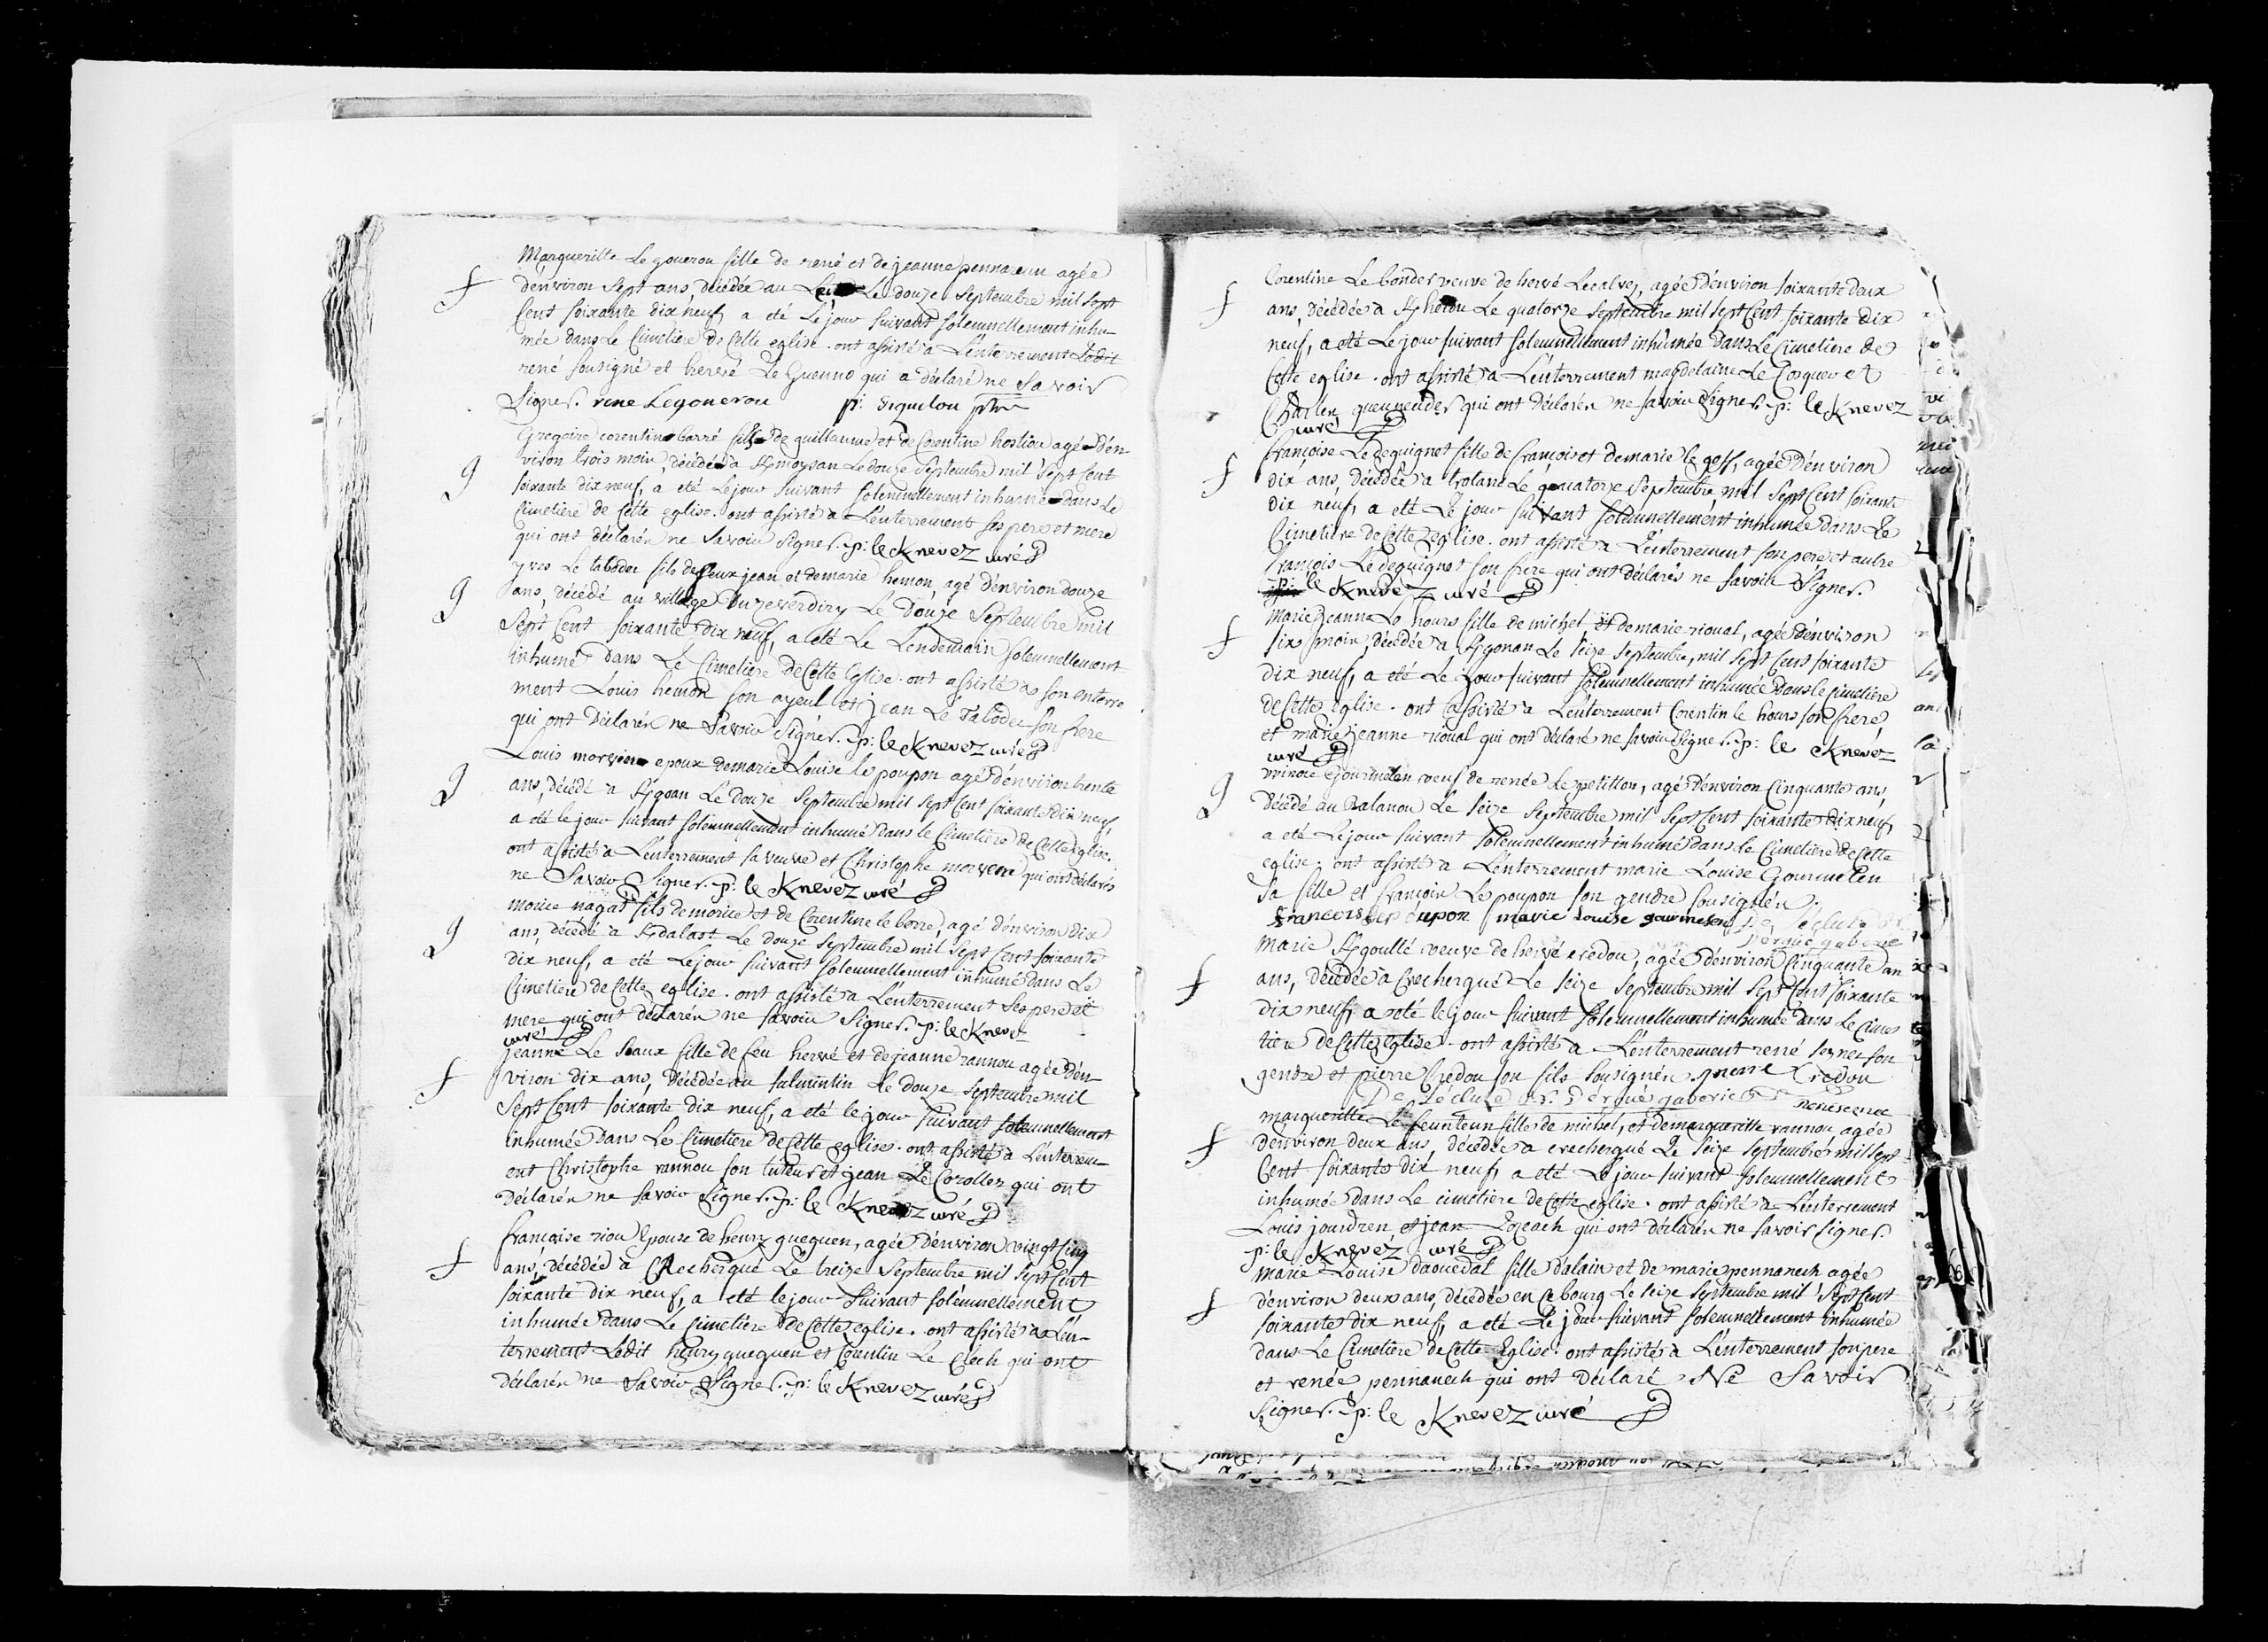 Margueritte Le goueron fille de rené et de jeanne pennarun agée
f d'environ Sept ans, decédée au Le douze Septembre mil Sept
Cent Soixante dix neuf, a eté Lejour Suivant Solemnellement inhu-
mée dans Le Cimetiere de Cette eglise. ont assisté a L'enterrement Ledit
rené Sousigné et hervé Le Guenno qui a déclaré ne Savoir
Signer. rene Legoueron p: Siquelou ptre
Gregoire corentin barré fils de guillaume et de Corentine hostiou agé d'en-
g viron trois mois, décédé a Kmoysan Le douze Septembre mil Sept Cent
Soixante dix neuf, a eté Lejour Suivant Solemnellement inhumé dans Le
Cimetiere de Cette eglise. ont assisté a L'enterrement Ses pere et mere
qui ont déclarés ne Savoir Signer. p: le Knevez curé
yves Le taboder fils de feux jean et demarie hemon, agé d'environ douze
g ans, décédé au village Du Le Douze Septembre mil
Sept Cent Soixante Dix neuf, a eté Le Lendemain Solemnellement
inhumé Dans Le Cimetiere de Cette Eglise. ont assisté a son enterre
ment Louis hemon Son ayeul et jean Le Taboder Son frere
qui ont Déclarés ne Savoir Signer. p: le Knevez curé
Louis morvan epoux demarie Louise le poupon agé d'environ trente
g ans, décédé a Kgoan Le douze Septembre mil Sept Cent Soixante dix neuf,
a eté le jour Suivant Solemnellement inhumé Dans le Cimetiere de Cette eglise.
ont assisté a L'enterrement Sa veuve et Christophe qui ont déclarés
ne Savoir Signer. p: le Knevez curé
morice nagat fils de morice et de Corentine le borre, agé d'environ Dix
g ans, décédé a Kdalaot Le douze Septembre mil Sept Cent Soixante
Dix neuf, a eté Lejour Suivant Solemnellement inhumé dans Le
Cimetiere de Cette eglise. ont assisté a L'enterrement Ses pere et
mere qui ont déclarés ne Savoir Signer. p: le Knevez
curé
jeanne Le Seaux fille de feu hervé et de jeanne rannou agée d'en-
f viron dix ans, Décédée au Salmintin Le douze Septembre mil
Sept Cent Soixante dix neuf, a eté le jour Suivant Solemnellement
inhumée Dans Le Cimetiere de Cette eglise. ont assisté a L'enterrem-
ent Christophe rannou Son tuteur et jean Le Coroller qui ont
Déclarés ne Savoir Signer. p: le Knevez curé
françoise riou Epouse de henry gueguen, agée d'environ vingt Cinq
f ans, décédéé a Crecherqué Le treize Septembre mil Sept Cent
Soixante dix neuf, a eté le jour Suivant Solemnellement
inhumée Dans Le Cimetiere de Cette eglise. ont assisté a L'en-
terrement Ledit henry gueguen et Corentin Le Clech qui ont
déclarés ne Savoir Signer. p: le Knevez curé
Corentine Le bonder veuve de hervé Lecalvez, agée d'environ Soixante deux
f ans, décédée a Le quatorze Septembre mil Sept Cent Soixante Dix
neuf, a eté Le jour Suivant Solemnellement inhumée Dans Le Cimetiere de
Cette eglise. ont assisté a L'enterrement magdelaine Le Cosquer et
Charles queneuder qui ont Déclarés ne Savoir Signer. p: le Knevez
curé
françoise Le deguignet fille de françois et demarie le goff, agée d'environ
f dix ans, décédée a trolan Le quatorze Septembre mil Sept Cent Soixante
Dix neuf, a eté Le jour Suivant Solemnellement inhumée dans Le
Cimetiere de Cette eglise. ont assisté a L'enterrement Son pere et autre
françois Le deguignet Son frere qui ont déclarés ne Savoir Signer.
p: le Knevez curé
Marie jeanne Le hours fille de michel et demarie rioual, agée d'environ
f Six mois, décédée a Kgonan Le Seize Septembre, mil Sept Cent Soixante
Dix neuf, a eté Le jour Suivant Solemnellement inhumée Dans Le Cimetiere
de Cette eglise. ont assisté a L'enterrement Corentin le hours Son frere,
et marie jeanne rioual qui ont déclaré ne Savoir Signer. p: le Knevez
curé
Gourmelen veuf de renée Le petillon, agé d'environ Cinquante ans,
g Décédé au Balanou Le Seize Septembre mil Sept Cent Soixante dix neuf,
a eté Lejour Suivant Solemnellement inhumé Dans Le Cimetiere de Cette
eglise. ont assisté a L'enterrement marie Louise Gourmelen
Sa fille et françois Le poupon Son gendre Sousignés.
francois Le poupon marie Louise gourmelen De Lécluse
Marie Kgoullé veuve de hervé credou, agée d'environ Cinquante
f ans, décédée a Crecherqué Le Seize Septembre mil Sept Cent Soixante
dix neuf, a eté le jour Suivant Solemnellement inhumée Dans Le Cime
tiere de Cette eglise. ont assisté a L'enterrement rené Sezner Son
gendre et pierre Credou Son fils Sousignés. pierre Credou
De Lécluse Dergué gaberic
margueritte Le feunteun fille de michel, et de margueritte rannou agée
f D'environ deux ans, décédée a crecherqué Le Seize Septembre mil Sept
Cent Soixante dix neuf, a eté Le jour Suivant Solemnellement
inhumée Dans Le cimetiere de Cette eglise. ont assisté a L'enterrement
Louis jourdren et jean qui ont déclarés ne Savoir Signer.
p: le Knevez curé
Marie Louise daouedal fille d'alain et de marie pennanech agée
f d'environ deux ans, décédée en Ce bourg Le Seize Septembre mil Sept Cent
Soixante dix neuf, a eté Le jour Suivant Solemnellement inhumée
dans Le Cimetiere de Cette Eglise. ont assistés a L'enterrement Son pere
et renée pennanech qui ont Déclaré Ne Savoir
Signer. p: le Knevez curé